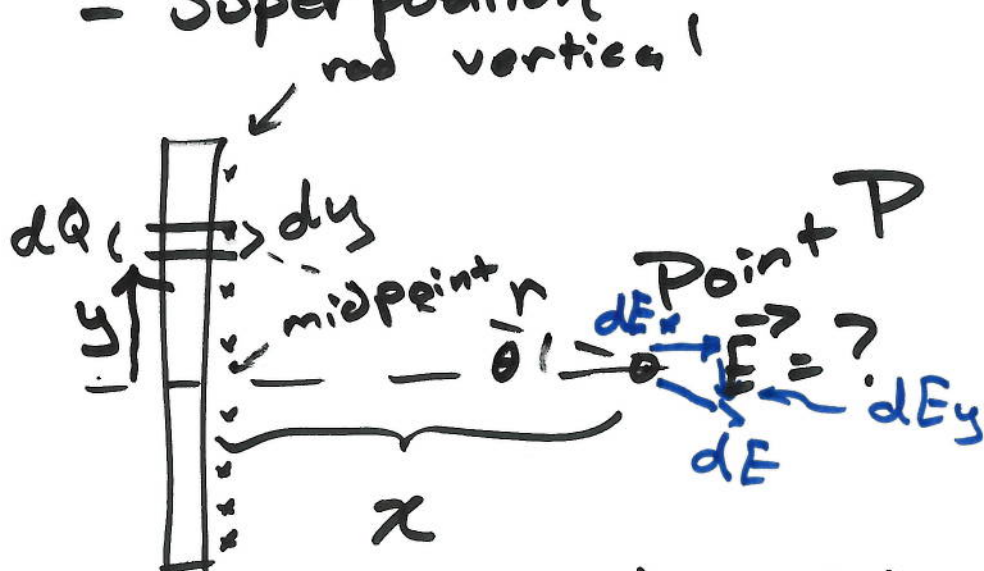 - Superposition
rod vertical
dQ
dy
y
midpoint
r
θ
Point P
dEx
E = ?
dEy
dE
x